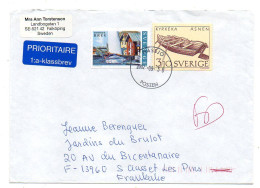 Mrs Ann Torstensson
Landborgatan 1
SE-521 42 Falköping
Sweden
PRIORITAIRE
1:a-klassbrev
KYRKEKA RÅNEN
SVERIGE
POSTEN
Jeanne Berenguer
Jardins du Brulot
20 AV du Bicentenaire
F-13960 Sausset Les Pins
Frankrike